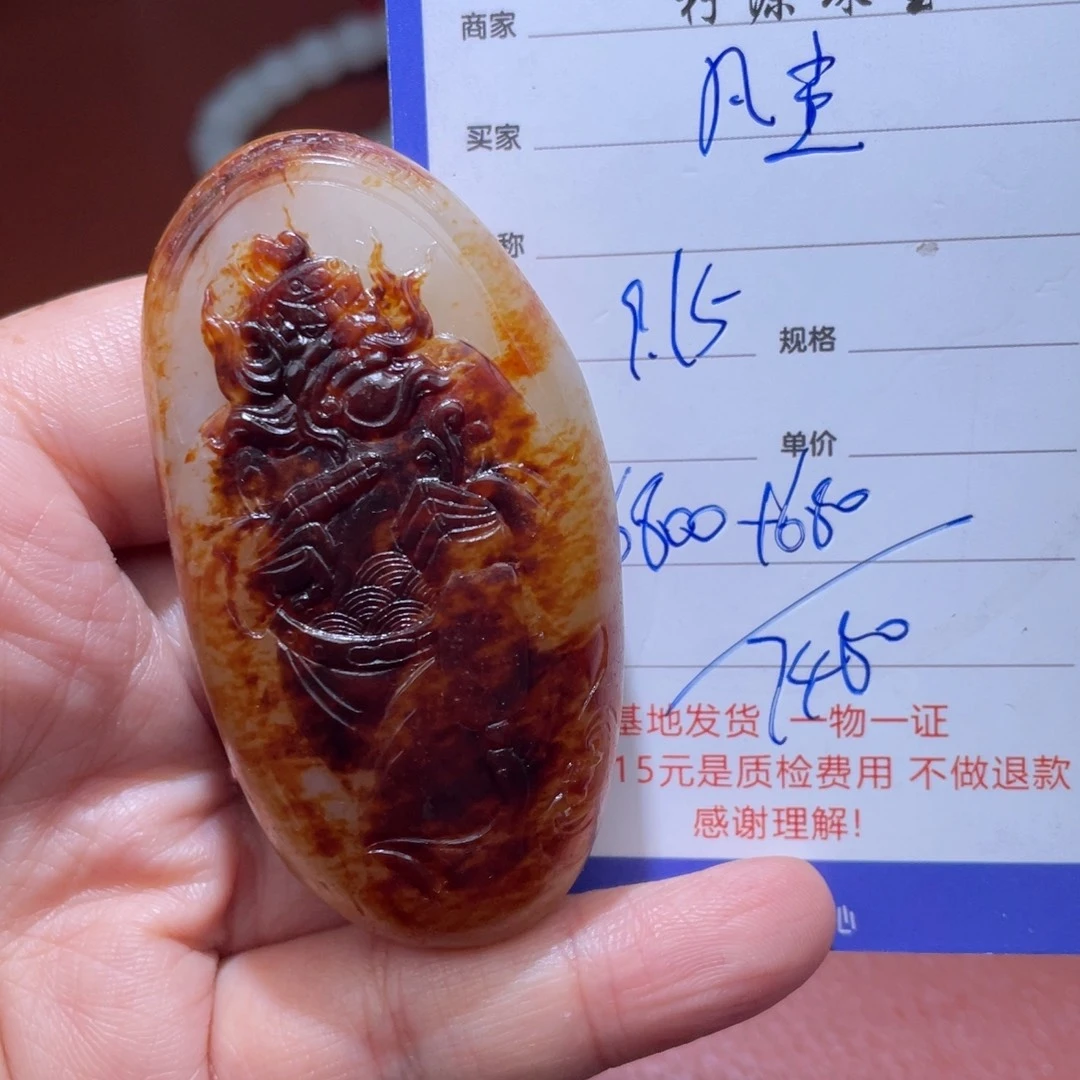 商家
风尘
买家
称
9.15
规格
单价
6800+680
7480
基地发货 一物一证
15元是质检费用 不做退款
感谢理解!
心